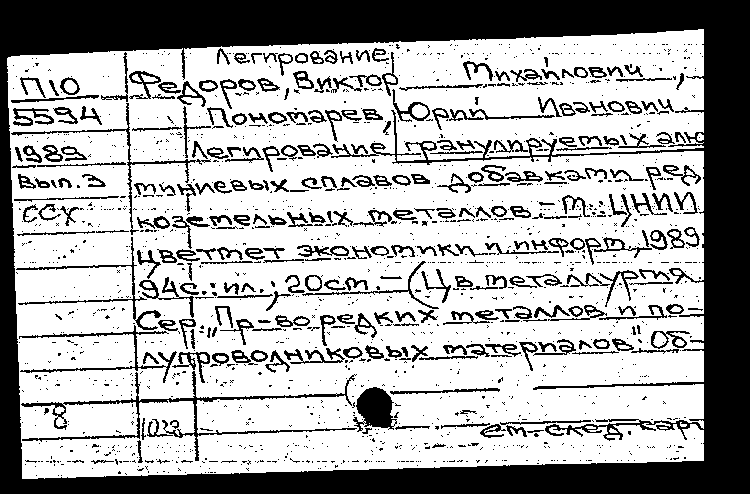 Легирование
П10 Федоров, Виктор Михайлович,
5594 Пономарев, Юрий Иванович.
1989 Легирование гранулируемых алю
Вып. 3 миниевых сплавов добавками ред
ССХ коземельных металлов. - М.: ЦНИИ
цветмет экономики и информ, 1989.
94с.: ил.; 20см. - (Цв. металлургия.
Сер. "Пр-во редких металлов и по-
лупроводниковых материалов": Об-
8 1028
см. след. карт